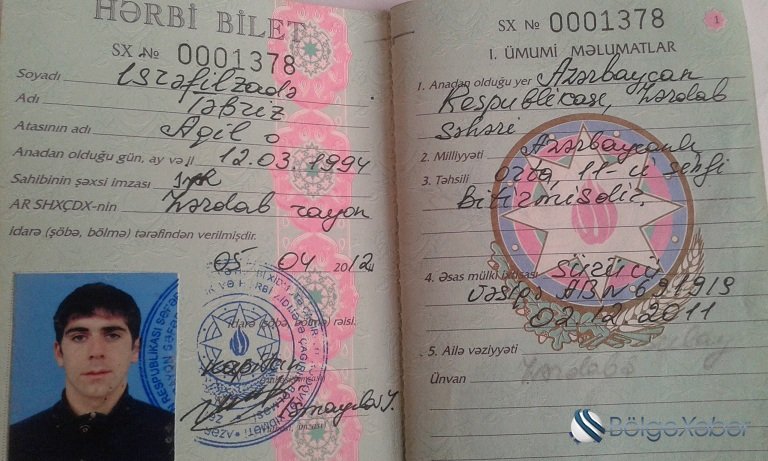 HƏRBİ BİLET
SX № 0001378
Soyadı İsrəfilzadə
Adı Təbriz
Atasının adı Aqil o
Anadan olduğu gün, ay və il 12.03.1994
Sahibinin şəxsi imzası
AR SHXÇDX-nin Zərdab rayon
idarə (şöbə, bölmə) tərəfindən verilmişdir.
05 04 2012
idarə (şöbə, bölmə) rəisi.
kapitan
SX № 0001378
1
I. ÜMUMİ MƏLUMATLAR
1. Anadan olduğu yer Azərbaycan
Respublikası, Zərdab
şəhəri
2. Milliyyəti Azərbaycanlı
3. Təhsili orta, 11-ci sinfi
bitirmişdir.
4. Əsas mülki ixtisası sürücü
vəsiqə AB № 691919
02.12.2011
5. Ailə vəziyyəti
Ünvan
BölgəXəbər